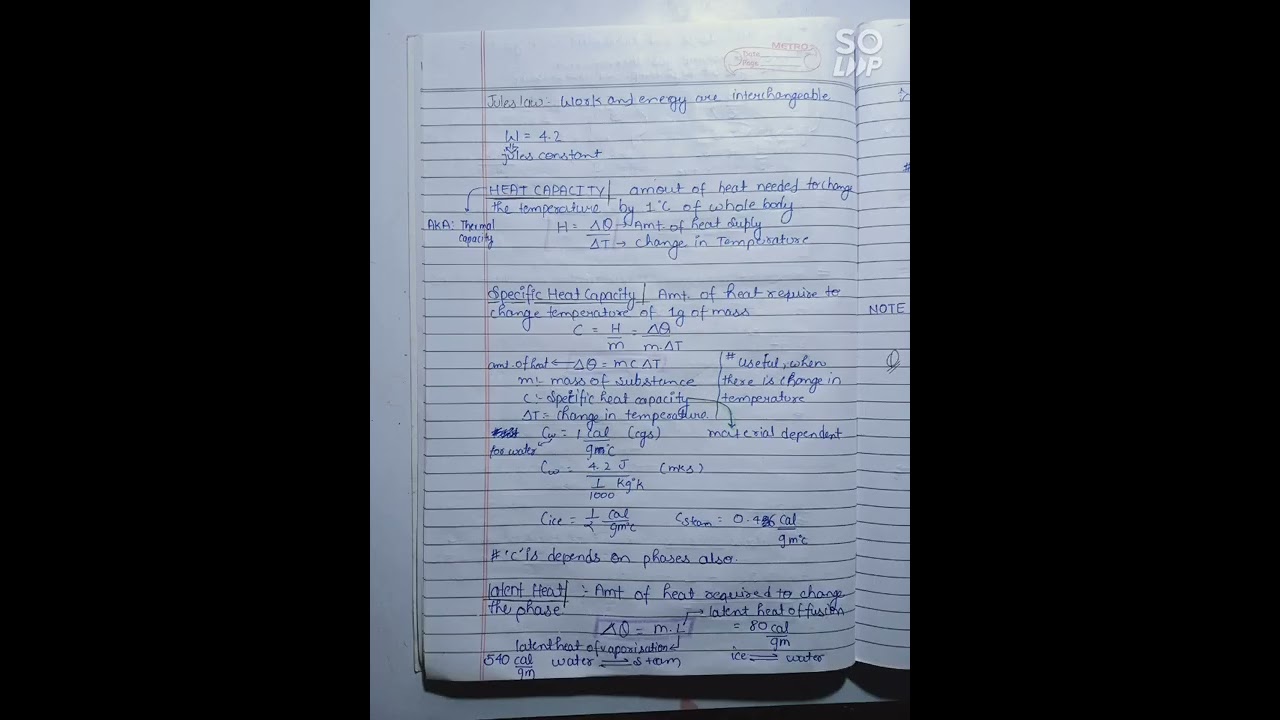 METRO
Date
Page
SO
LOOP
Jules law :- Work and energy are interchangeable
W = 4.2
jules constant
HEAT CAPACITY | amout of heat needed to change
the temperature by 1°C of whole body
AKA: Thermal
capacity
H = ΔQ → Amt. of heat suply
ΔT → change in Temperature
Specific Heat Capacity | Amt. of heat require to
change temperature of 1g of mass
C = H/m = ΔQ/m.ΔT
amt. of heat ← ΔQ = mCΔT
m :- mass of substance
C :- Specific heat capacity
ΔT = change in temperature
# useful, when
there is change in
temperature
material dependent
Cw = 1 cal/gm°C (cgs)
for water
Cw = 4.2 J / 1/1000 kg°k (mks)
Cice = 1/2 cal/gm°C Csteam = 0.46 cal/gm°C
# 'c' is depends on phases also.
Latent Heat | :- Amt of heat required to change
the phase
latent heat of fusion
ΔQ = m.L
= 80 cal/gm
latent heat of vaporisation
540 cal/gm water ⇌ steam
ice ⇌ water
NOTE
①
#